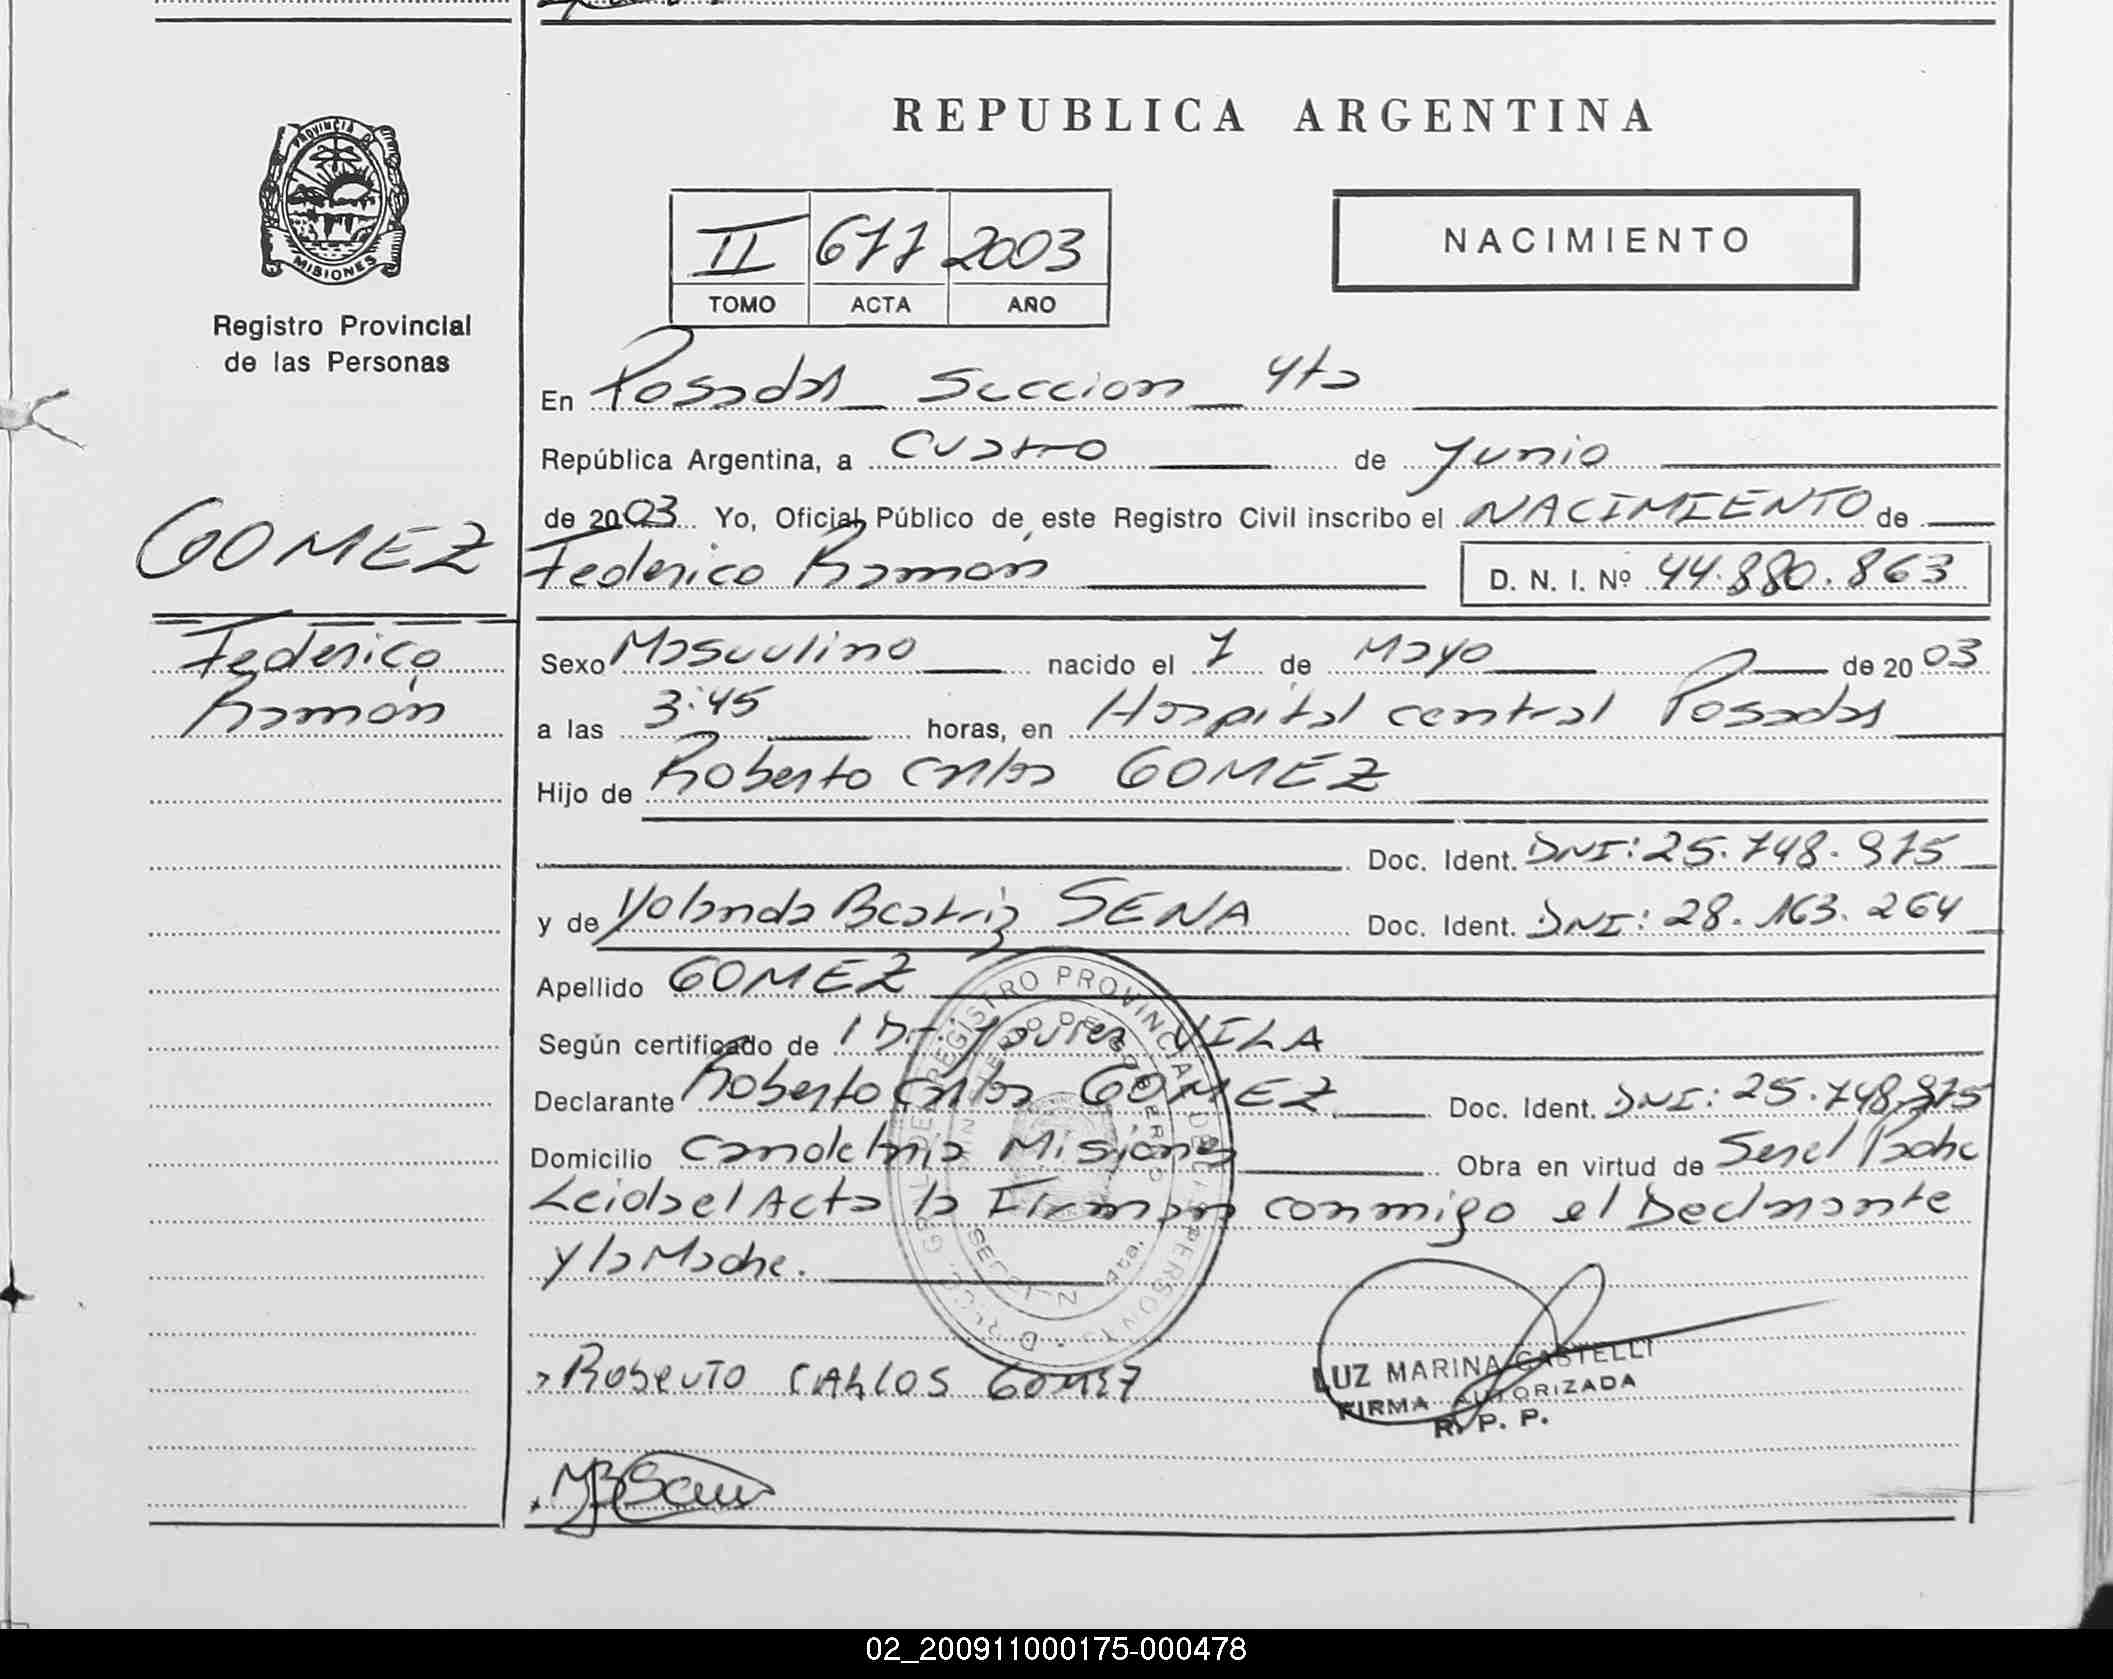 REPUBLICA ARGENTINA
PROVINCIA DE
MISIONES
Registro Provincial
de las Personas
II 677 2003
TOMO ACTA AÑO
NACIMIENTO
En Posadas Seccion 4ta
República Argentina, a Cuatro de Junio
de 2003 Yo, Oficial Público de este Registro Civil inscribo el NACIMIENTO de
GOMEZ
Federico Ramón D. N. I. Nº 44.880.863
Federico
Ramón
Sexo Masculino nacido el 7 de Mayo de 2003
a las 3:45 horas, en Hospital central Posadas
Hijo de Roberto Carlos GOMEZ
Doc. Ident. DNI: 25.748.975
y de Yolanda Beatriz SENA Doc. Ident. DNI: 28.163.264
Apellido GOMEZ
Según certificado de Dr. Javier VILA
Declarante Roberto Carlos GOMEZ Doc. Ident. DNI: 25.748.975
Domicilio Candelaria Misiones Obra en virtud de Ser el Padre
Leida el Acta la Firman conmigo el Declarante
y la Madre.
ROBERTO CARLOS GOMEZ
LUZ MARINA CASTELLI
FIRMA AUTORIZADA
R. P. P.
02_200911000175-000478